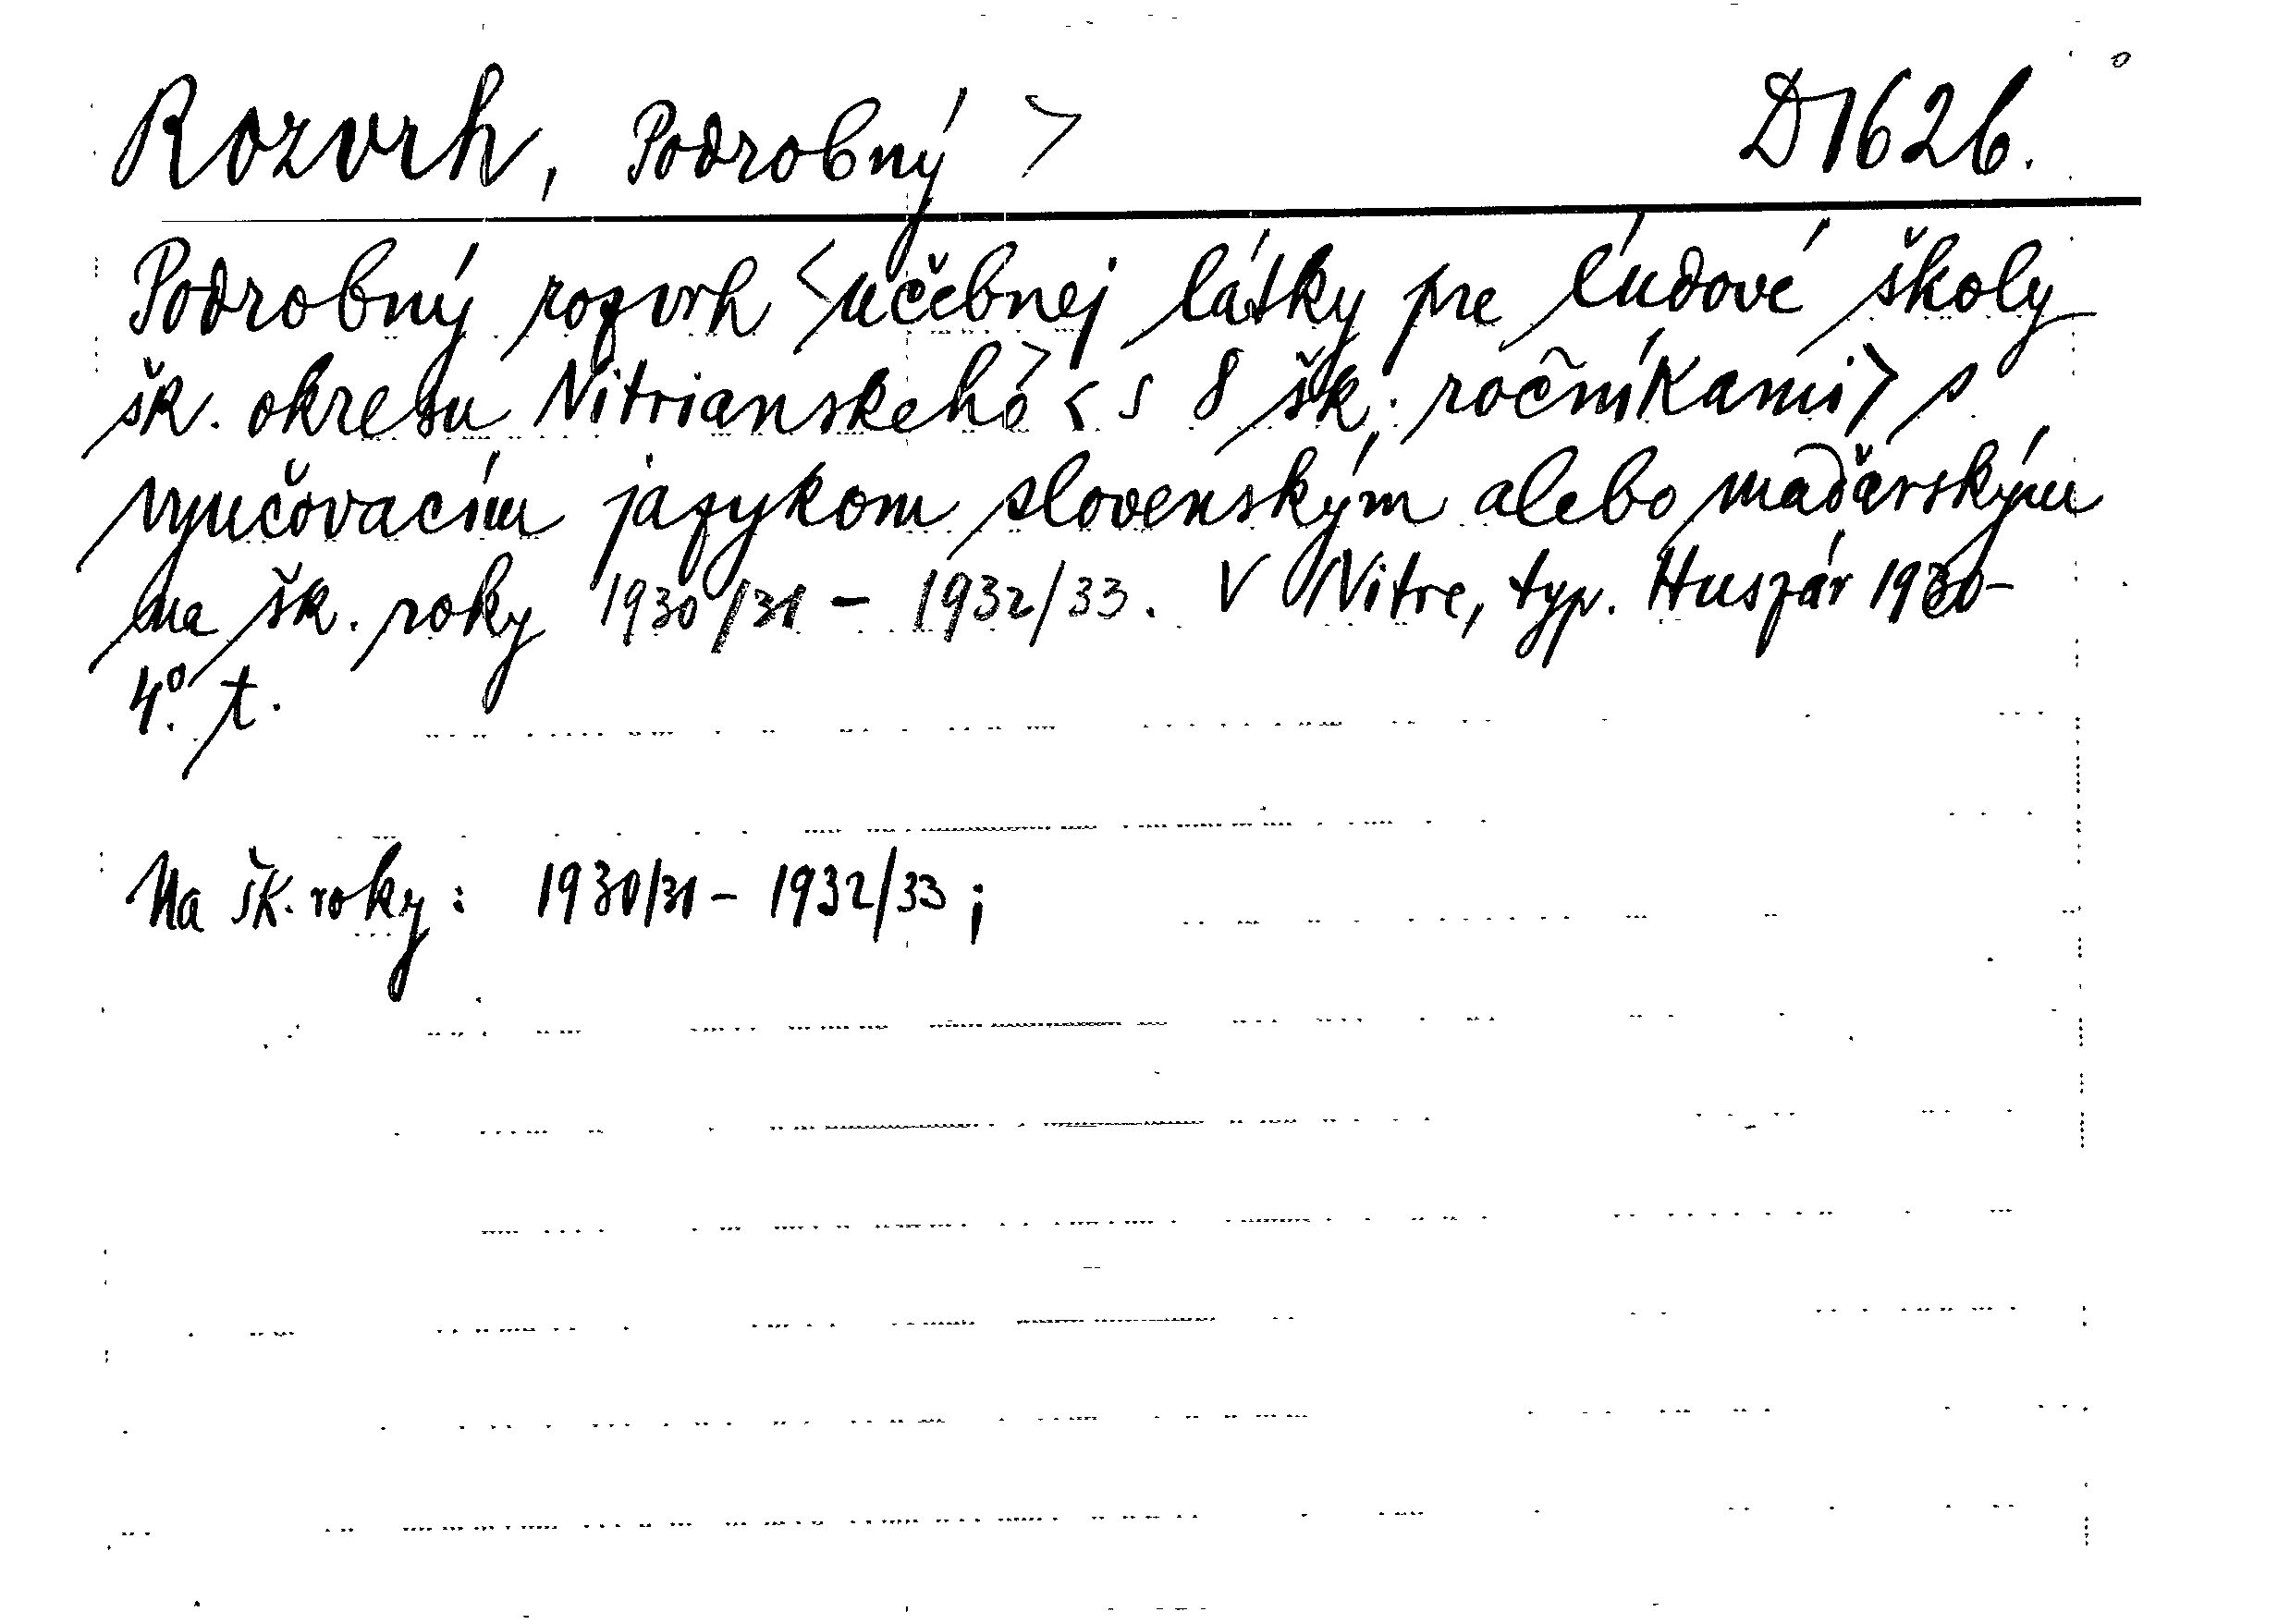 Rozvrh, Podrobný > D1626.
Podrobný rozvrh <učebnej látky pre ľudové školy
šk. okresu Nitrianskeho> <s 8 šk. ročníkami> s
vyučovacím jazykom slovenským alebo maďarským
na šk. roky 1930/31 - 1932/33. V Nitre, typ. Huszár 1930-
4° t.
Na šk. roky: 1930/31 - 1932/33;